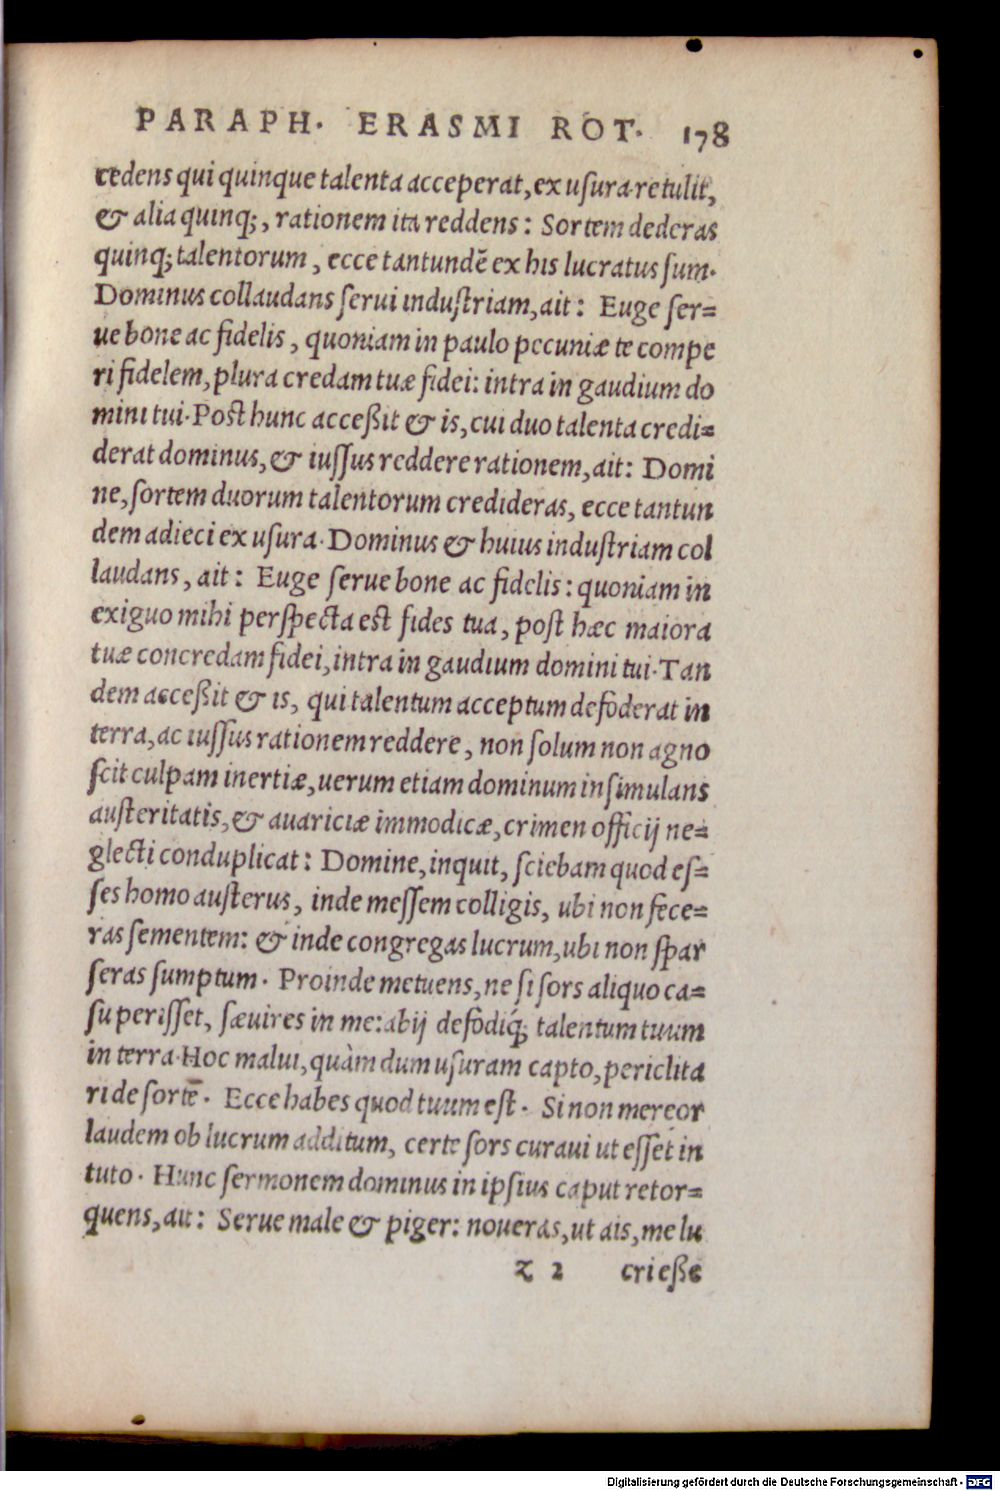 PARAPH. ERASMI ROT. 178
cedens qui quinque talenta acceperat, ex usura retulit,
& alia quinq;, rationem ita reddens: Sortem dederas
quinq; talentorum, ecce tantundē ex his lucratus sum.
Dominus collaudans serui industriam, ait: Euge ser=
ue bone ac fidelis, quoniam in paulo pecuniæ te compe
ri fidelem, plura credam tuæ fidei: intra in gaudium do
mini tui. Post hunc acceßit & is, cui duo talenta credi=
derat dominus, & iussus reddere rationem, ait: Domi
ne, sortem duorum talentorum credideras, ecce tantun
dem adieci ex usura. Dominus & huius industriam col
laudans, ait: Euge serue bone ac fidelis: quoniam in
exiguo mihi perspecta est fides tua, post hæc maiora
tuæ concredam fidei, intra in gaudium domini tui. Tan
dem acceßit & is, qui talentum acceptum defoderat in
terra, ac iussus rationem reddere, non solum non agno
scit culpam inertiæ, uerum etiam dominum insimulans
austeritatis, & auariciæ immodicæ, crimen officij ne=
glecti conduplicat: Domine, inquit, sciebam quod es=
ses homo austerus, inde messem colligis, ubi non fece=
ras sementem: & inde congregas lucrum, ubi non spar
seras sumptum. Proinde metuens, ne si sors aliquo ca=
su perisset, sæuires in me: abij defodiq́; talentum tuum
in terra. Hoc malui, quàm dum usuram capto, periclita
ri de sortē. Ecce habes quod tuum est. Si non mereor
laudem ob lucrum additum, certe sors curaui ut esset in
tuto. Hunc sermonem dominus in ipsius caput retor=
quens, ait: Serue male & piger: noueras, ut ais, me lu
z 2 crieße
Digitalisierung gefördert durch die Deutsche Forschungsgemeinschaft - DFG